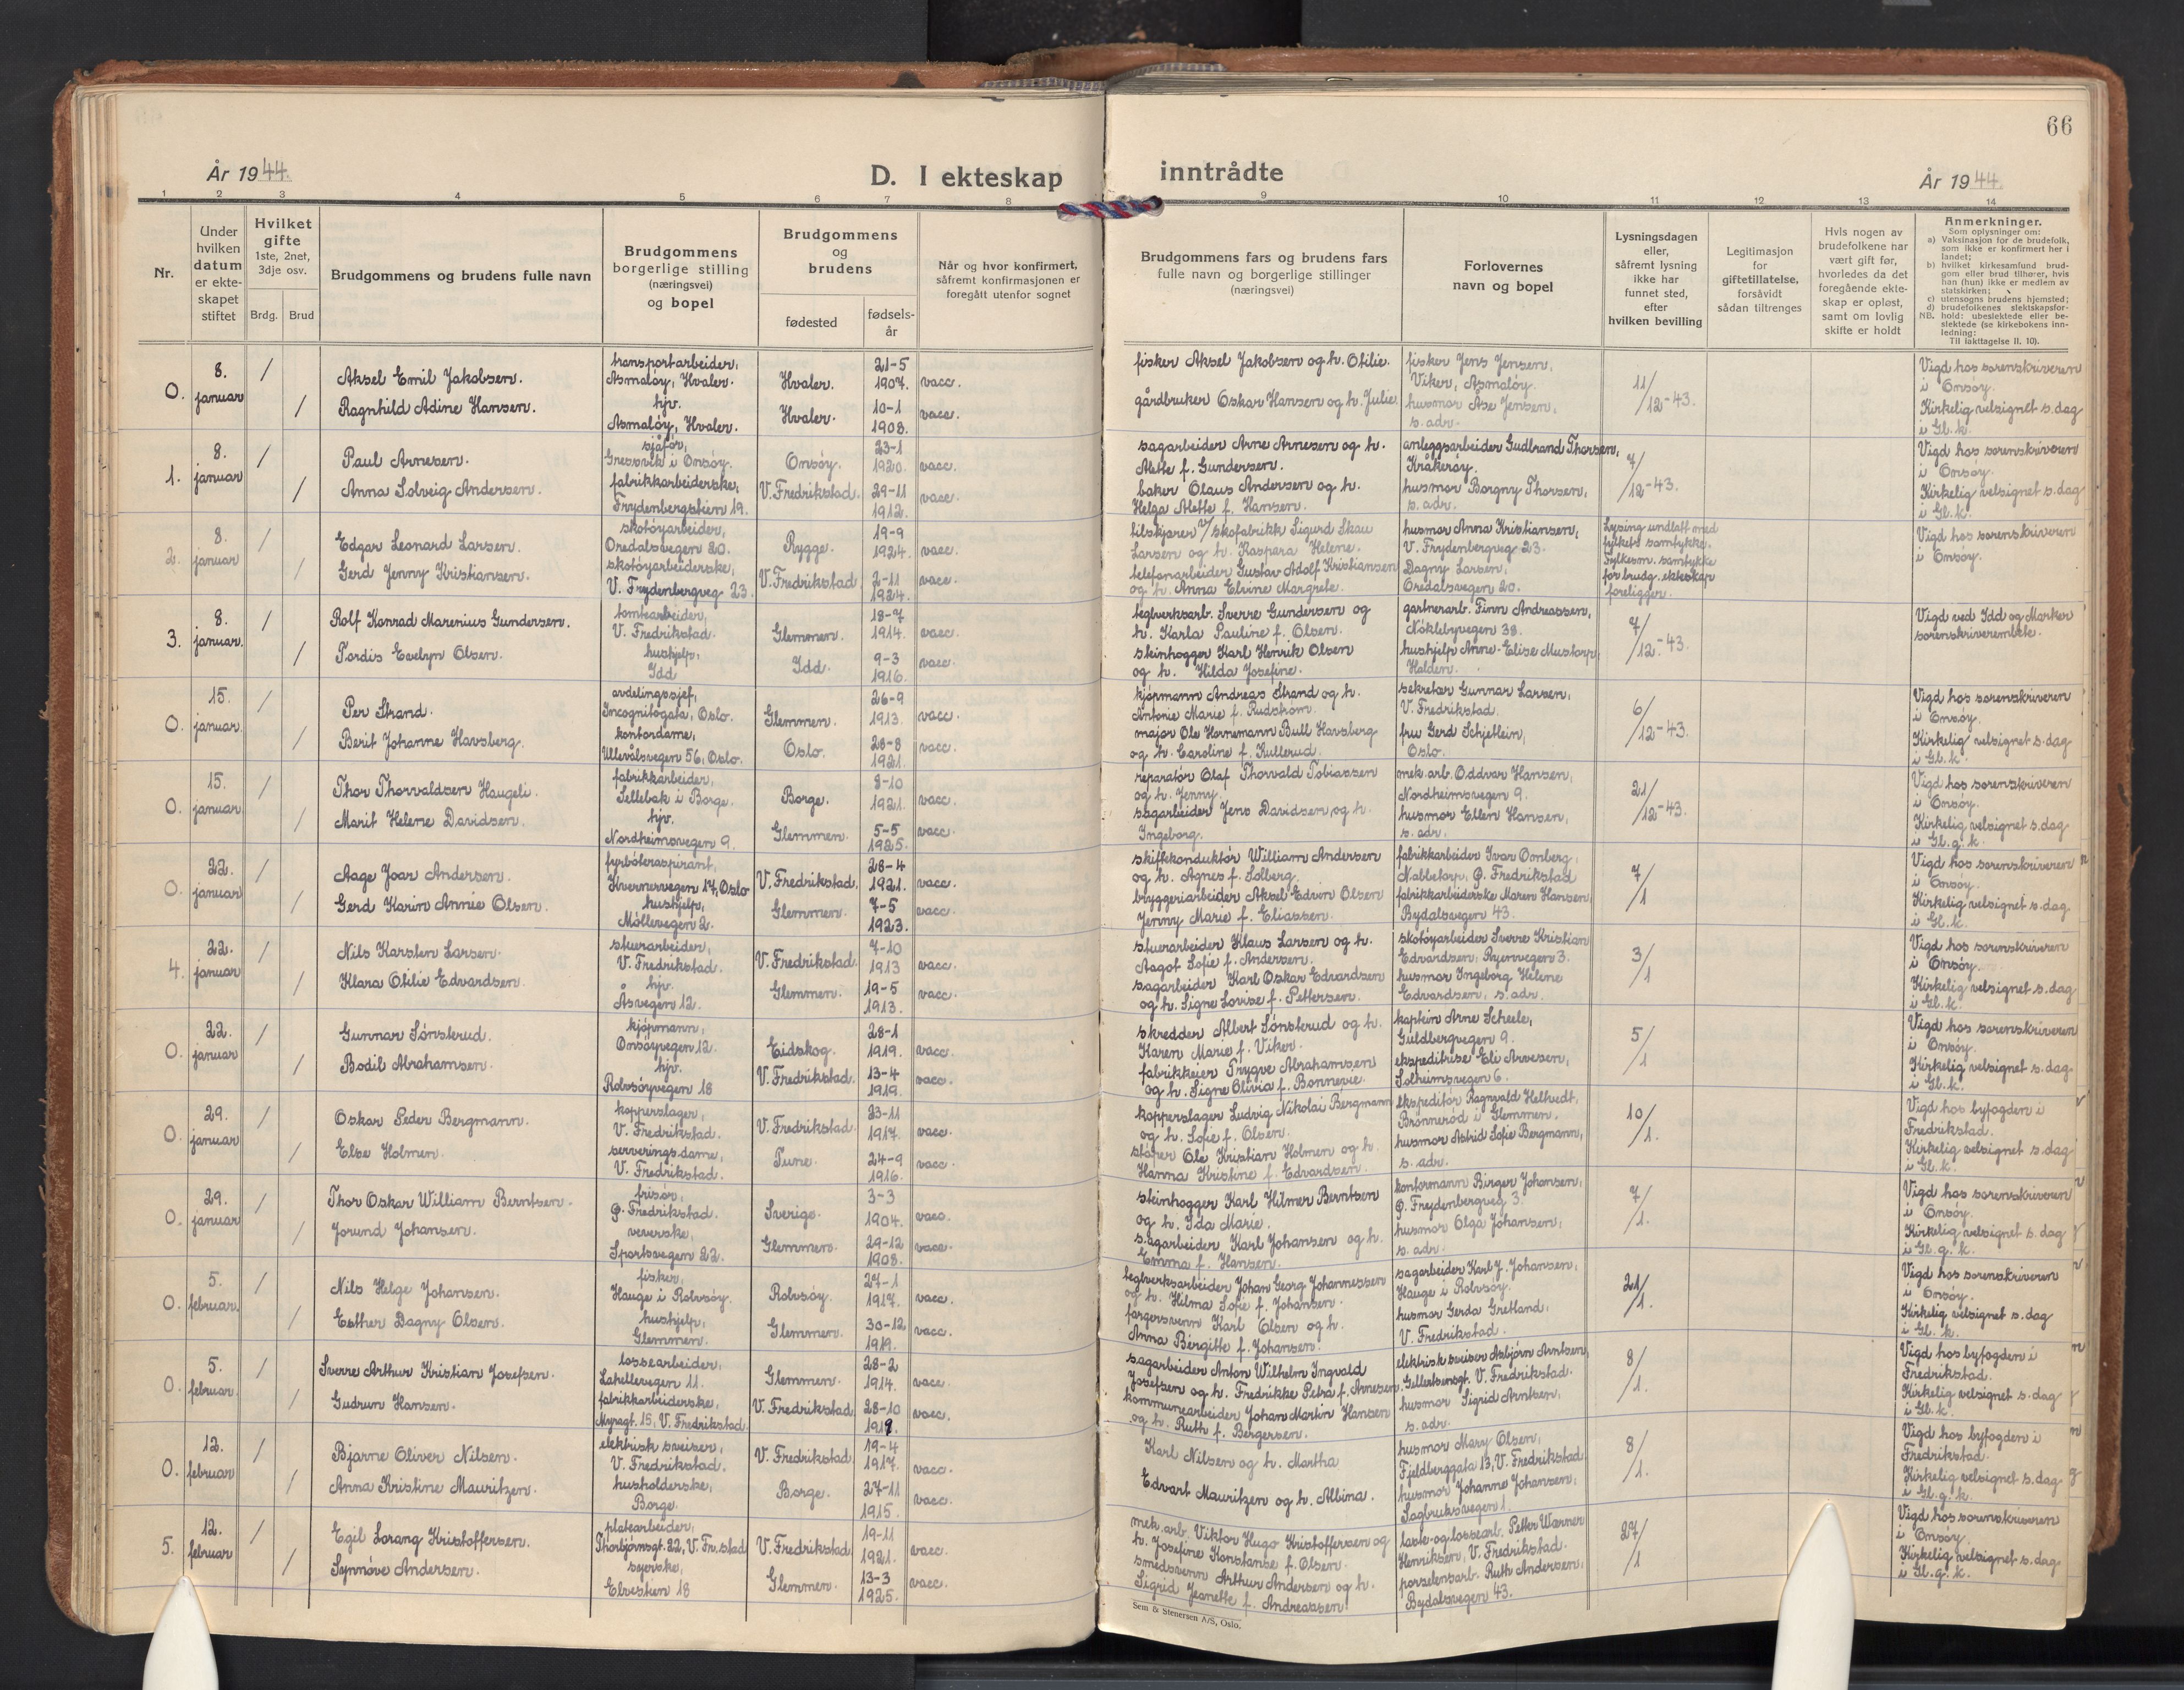 66
År 1944.
D. I ekteskap inntrådte
År 1944.
1 2 3 4 5 6 7 8 9 10 11 12 13 14
Nr.
Under hvilken datum er ekteskapet stiftet
Hvilket gifte 1ste, 2net, 3dje osv.
Brdg. Brud
Brudgommens og brudens fulle navn
Brudgommens borgerlige stilling (næringsvei) og bopel
Brudgommens og brudens
fødested
fødselsår
Når og hvor konfirmert, såfremt konfirmasjonen er foregått utenfor sognet
Brudgommens fars og brudens fars fulle navn og borgerlige stillinger (næringsvei)
Forlovernes navn og bopel
Lysningsdagen eller, såfremt lysning ikke har funnet sted, efter hvilken bevilling
Legitimasjon for giftetillatelse, forsåvidt sådan tiltrenges
Hvis nogen av brudefolkene har vært gift før, hvorledes da det foregående ekteskap er opløst, samt om lovlig skifte er holdt
Anmerkninger.
Som oplysninger om:
a) Vaksinasjon for de brudefolk, som ikke er konfirmert her i landet;
b) hvilket kirkesamfund brudgom eller brud tilhører, hvis han (hun) ikke er medlem av statskirken;
c) utensogns brudens hjemsted;
d) brudefolkenes slektskapsforhold: ubeslektede eller beslektede (se kirkebokens innledning:
NB. Til iakttagelse II. 10).
0. 8. januar / Aksel Emil Jakobsen. transportarbeider, Asmaløy, Hvaler. Hvaler. 21-5 1907. vacc. fisker Aksel Jakobsen og h. Otilie. fisker Jens Jensen, Viker, Asmaløy. 11/12-43. Vigd hos sorenskriveren i Onsøy.
/ Ragnhild Adine Hansen. hjv. Asmaløy, Hvaler. Hvaler. 10-1 1908. vacc. gårdbruker Oskar Hansen og h. Julie. husmor Åse Jensen, s. adr. Kirkelig velsignet s. dag i Gl. k.
1. 8. januar / Paul Arnesen. sjåfør, Gressvik i Onsøy. Onsøy. 23-1 1920. vacc. sagarbeider Arne Arnesen og h. Alette f. Gundersen. anleggsarbeider Gudbrand Thorsen, Kråkerøy. 7/12-43. Vigd hos sorenskriveren i Onsøy.
/ Anna Solveig Andersen. fabrikkarbeiderske, Frydenbergstien 19. V. Fredrikstad. 29-11 1912. vacc. baker Olaus Andersen og h. Helga Alette f. Hansen. husmor Borgny Thorsen, s. adr. Kirkelig velsignet s. dag i Gl. k.
2. 8. januar / Edgar Leonard Larsen. skotøyarbeider, Oredalsvegen 20. Rygge. 19-9 1924. vacc. tilskjærer v/ skofabrikk Sigurd Skau Larsen og h. Kaspara Helene. husmor Anna Kristiansen, V. Frydenbergveg 23. Lysing undlatt med fylkets samtykke. Fylkesm. samtykke for brudg. ekteskap foreligger. Vigd hos sorenskriveren i Onsøy.
/ Gerd Jenny Kristiansen. skotøyarbeiderske, V. Frydenbergveg 23. V. Fredrikstad 2-11 1924. vacc. telefonarbeider Gustav Adolf Kristiansen og h. Anna Elvine Margrete. Dagny Larsen, Oredalsvegen 20.
3. 8. januar. / Rolf Konrad Marenius Gundersen. tomtearbeider, V. Fredrikstad. Glemmen. 18-7 1914. vacc. teglverksarb. Sverre Gundersen og h. Karla Pauline f. Olsen. gartnerarb. Finn Andreassen, Nøklebyvegen 38. 7/12-43. Vigd ved Idd og Marker sorenskriverembete.
/ Tordis Evelyn Olsen. hushjelp, Idd Idd. 9-3 1916. vacc. steinhogger Karl Henrik Olsen og h. Hilda Josefine. hushjelp Anne-Elise Mustorp, Halden.
0. 15. januar. / Per Strand. avdelingssjef, Incognitogata, Oslo. Glemmen. 26-9 1913. vacc. kjøpmann Andreas Strand og h. Antonie Marie f. Rudstrøm. sekretær Gunnar Larsen, V. Fredrikstad. 6/12-43. Vigd hos sorenskriveren i Onsøy.
/ Berit Johanne Havsberg. kontordame, Ullevålsvegen 56, Oslo. Oslo. 28-8 1921. vacc. major Ole Hornemann Bull Havsberg og h. Caroline f. Kullerud. fru Gerd Schjetlein, Oslo. Kirkelig velsignet s. dag i Gl. k.
0. 15. januar / Thor Thorvaldsen Haugeli. fabrikkarbeider, Sellebak i Borge. Borge. 8-10 1921. vacc. reparatør Olaf Thorvald Tobiassen og h. Jenny. mek. arb. Oddvar Hansen, Nordheimsvegen 9. 21/12-43. Vigd hos sorenskriveren i Onsøy.
/ Marit Helene Davidsen. hjv. Nordheimsvegen 9. Glemmen. 5-5 1925. vacc. sagarbeider Jens Davidsen og h. Ingeborg. husmor Ellen Hansen, s. adr. Kirkelig velsignet s. dag i Gl. g. k.
0. 22. januar / Aage Joar Andersen. fyrbøteraspirant, Kvernervegen 17, Oslo V. Fredrikstad. 28-4 1921. vacc. skiftkonduktør William Andersen og h. Agnes f. Solberg. fabrikkarbeider Ivar Omberg, Nabbetorp, Ø. Fredrikstad 7/1 Vigd hos sorenskriveren i Onsøy.
/ Gerd Karin Annie Olsen. hushjelp, Møllevegen 2. Glemmen. 7-5 1923. vacc. bryggeriarbeider Aksel Edvin Olsen Jenny Marie f. Eliassen. fabrikkarbeiderske Maren Hansen, Bydalsvegen 43. Kirkelig velsignet s. dag. i Gl. k.
4. 22. januar / Nils Karsten Larsen. stuerarbeider, V. Fredrikstad. V. Fredrikstad. 7-10 1913 vacc. stuerarbeider Klaus Larsen og h. Aagot Sofie f. Andersen. skotøyarbeider Sverre Kristian Edvardsen, Ryenvegen 3. 3/1 Vigd hos sorenskriveren i Onsøy.
/ Klara Otilie Edvardsen. hjv. Åsvegen 12. Glemmen. 19-5 1913. vacc. sagarbeider Karl Oskar Edvardsen og h. Signe Lovise f. Pettersen. husmor Ingeborg Helene Edvardsen, s. adr. Kirkelig velsignet s. dag i Gl. k.
0. 22. januar / Gunnar Sønsterud. kjøpmann, Onsøyvegen 12. Eidskog. 28-1 1919. vacc. skredder Albert Sønsterud og h. Karen Marie f. Viker. kaptein Arne Scheele, Guldbergvegen 9. 5/1 Vigd hos sorenskriveren i Onsøy.
/ Bodil Abrahamsen. hjv. Rolvsøyvegen 18 V. Fredrikstad. 13-4 1919. vacc. fabrikkeier Trygve Abrahamsen og h. Signe Olivia f. Bonnevie. ekspeditrise Eli Arvesen, Solheimsvegen 6. Kirkelig velsignet s. dag i Gl. k.
0. 29. januar / Oskar Peder Bergmann. kopperslager, V. Fredrikstad. V. Fredrikstad. 23-11 1917. vacc. kopperslager Ludvig Nikolai Bergmann og h. Sofie f. Olsen. ekspeditør Ragnvald Heltvedt, Brønnerød i Glemmen. 10/1. Vigd hos byfogden i Fredrikstad.
/ Else Holmen. serverings-dame, V. Fredrikstad. Tune. 24-9 1916. vacc. støper Ole Kristian Holmen og h. Hanna Kristine f. Edvardsen. husmor Astrid Sofie Bergmann, s. adr. Kirkelig velsignet s. dag i Gl. k.
0. 29. januar / Thor Oskar William Berntsen. frisør, Ø. Fredrikstad. Sverige. 3-3 1904. vacc. steinhogger Karl Hilmer Berntsen og h. Ida Marie. kontormann Birger Johansen, Ø. Frydenbergveg 3. 7/1. Vigd hos sorenskriveren i Onsøy.
/ Jorund Johansen. veverske, Sportsvegen 22. Glemmen. 29-12 1908. vacc. sagarbeider Karl Johansen og h. Emma f. Hansen. husmor Olga Johansen, s. adr. Kirkelig velsignet s. dag i Gl. g. k.
0. 5. februar. / Nils Helge Johansen. fisker, Hauge i Rolvsøy. Rolvsøy. 27-1 1917. vacc. teglverksarbeider Johan Georg Johannessen og h. Hilma Sofie f. Johansen. sagarbeider Karl J. Johansen, Hauge i Rolvsøy. 21/1. Vigd hos sorenskriveren i Onsøy.
/ Esther Dagny Olsen. hushjelp, Glemmen. Glemmen. 30-12 1919. vacc. fargersvenn Karl Olsen og h. Anna Bergitte f. Johansen. husmor Gerda Gretland, V. Fredrikstad. Kirkelig velsignet s. dag i Gl. k.
0. 5. februar. / Sverre Arthur Kristian Josefsen. lossearbeider, Lahellevegen 11. Glemmen. 28-2 1914. vacc. sagarbeider Anton Wilhelm Ingvald Josefsen og h. Fredrikke Petra f. Arnesen. elektrisk sveiser Asbjørn Arntsen, Gellertsensgt. V. Fredrikstad. 8/1. Vigd hos byfogden i Fredrikstad.
/ Gudrun Hansen. fabrikkarbeiderske, Myragt. 15, V. Fredrikstad V. Fredrikstad 28-10 1919. vacc. kommunearbeider Johan Martin Hansen og h. Ruth f. Bergersen. husmor Sigrid Arntsen, s. adr. Kirkelig velsignet s. dag i Gl. k.
0. 12. februar / Bjarne Oliver Nilsen. elektrisk sveiser, V. Fredrikstad. V. Fredrikstad 19-4 1917. vacc. Karl Nilsen og h. Martha husmor Mary Olsen, Fjeldberggata 13, V. Fredrikstad 8/1. Vigd hos byfogden i Fredrikstad.
/ Anna Kristine Mauritzen. husholderske, Borge. Borge. 27-11 1915. vacc. Edvart Mauritzen og h. Albina. husmor Johanne Johansen, Sagbruksvegen 1. Kirkelig velsignet s. dag i Gl. g. k.
5. 12. februar / Egil Lorang Kristoffersen. platearbeider, Thorbjørnsgt. 22, V. Fr.stad V. Fredrikstad. 19-11 1921. vacc. mek. arb. Viktor Hugo Kristoffersen og h. Josefine Konstanse f. Olsen. laste-og lossearb. Petter Warner Henriksen, V. Fredrikstad. 27/1 Vigd hos sorenskriveren i Onsøy.
/ Synnøve Andersen. syerske, Elvestien 18 Glemmen. 13-3 1925. vacc. smedsvenn Arthur Andersen og h. Sigrid Jeanette f. Andreassen. porselensarb. Ruth Andersen, Bydalsvegen 43. Kirkelig velsignet s. dag i Gl. g. k.
Sem & Stenersen A/S, Oslo.